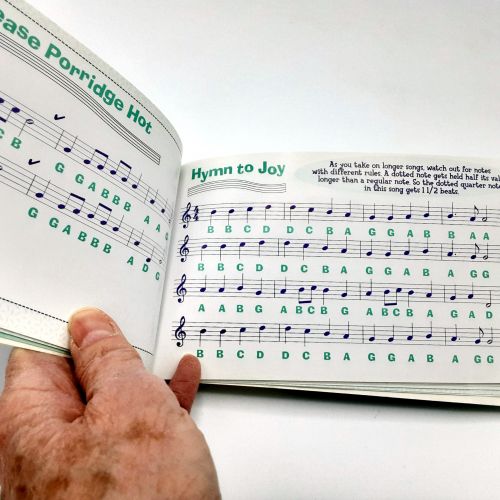 ease Porridge Hot
C B G G A B B B A A
G G A B B B A D G
Hymn to Joy
As you take on longer songs, watch out for notes
with different rules. A dotted note gets held half its val
longer than a regular note. So the dotted quarter note
in this song gets 1 1/2 beats.
B B C D D C B A G G A B B A A
B B C D D C B A G G A B A G G
A A B G A B C B G A B C B A G A D
B B C D D C B A G G A B A G G